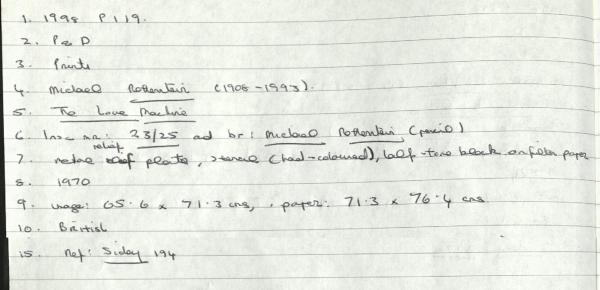 1. 1998 P119.
2. P&D
3. Prints
4. Michael Rothenstein (1908-1993).
5. The Love Machine
6. Insc nr: 23/25 and br: Michael Rothenstein (pencil)
relief
7. plate, stencil (hand-coloured), half-tone block on paper
8. 1970
9. image: 65.6 x 71.3 cms, paper: 71.3 x 76.4 cms
10. British
15. Ref: Siday 194